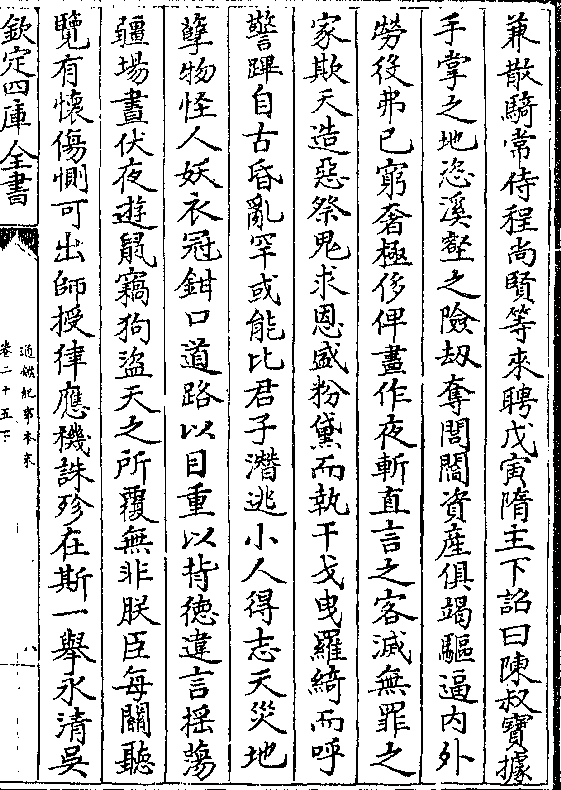 兼散騎常侍程尚賢等來聘戊寅隋主下詔曰陳叔寶據
手掌之地恣溪壑之險刼奪閭閻資産俱竭驅逼内外
勞役弗已窮奢極侈俾晝作夜斬直言之客滅無罪之
家欺天造惡祭鬼求恩盛粉黛而執干戈曳羅綺而呼
警蹕自古昏亂罕或能比君子潛逃小人得志天災地
孽物怪人妖衣冠鉗口道路以目重以背德違言揺蕩
疆場晝伏夜遊鼠竊狗盜天之所覆無非朕臣每關聽
覽有懷傷惻可出師授律應機誅殄在斯一舉永清吳
欽定四庫全書
通鑑紀事本末
卷二十五下
八